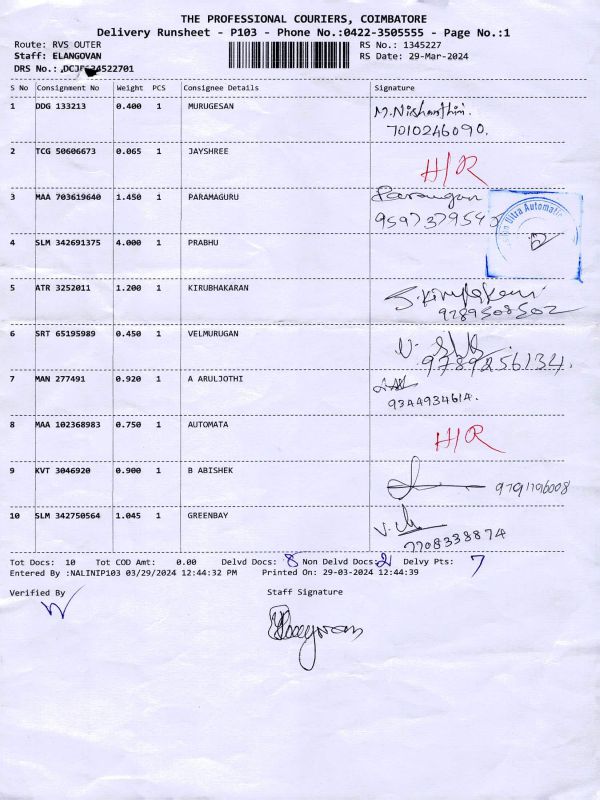 THE PROFESSIONAL COURIERS, COIMBATORE
Delivery Runsheet - P103 - Phone No.:0422-3505555 - Page No.:1
Route: RVS OUTER RS No.: 1345227
Staff: ELANGOVAN RS Date: 29-Mar-2024
DRS No.:
S No Consignment No Weight PCS Consignee Details Signature
1 DDG 133213 0.400 1 MURUGESAN M.Nishanthini
7010246090.
2 TCG 50606673 0.065 1 JAYSHREE H/R
3 MAA 703619640 1.450 1 PARAMAGURU
Ultra Automatic
4 SLM 342691375 4.000 1 PRABHU
5 ATR 3252011 1.200 1 KIRUBHAKARAN
9789508502
6 SRT 65195989 0.450 1 VELMURUGAN
9789256134.
7 MAN 277491 0.920 1 A ARULJOTHI
9344934614.
8 MAA 102368983 0.750 1 AUTOMATA H/R
9 KVT 3046920 0.900 1 B ABISHEK
10 SLM 342750564 1.045 1 GREENBAY
7708338874
Tot Docs: 10 Tot COD Amt: 0.00 Delvd Docs: 8 Non Delvd Docs: 2 Delvy Pts: 7
Entered By :NALINIP103 03/29/2024 12:44:32 PM Printed On: 29-03-2024 12:44:39
Verified By Staff Signature